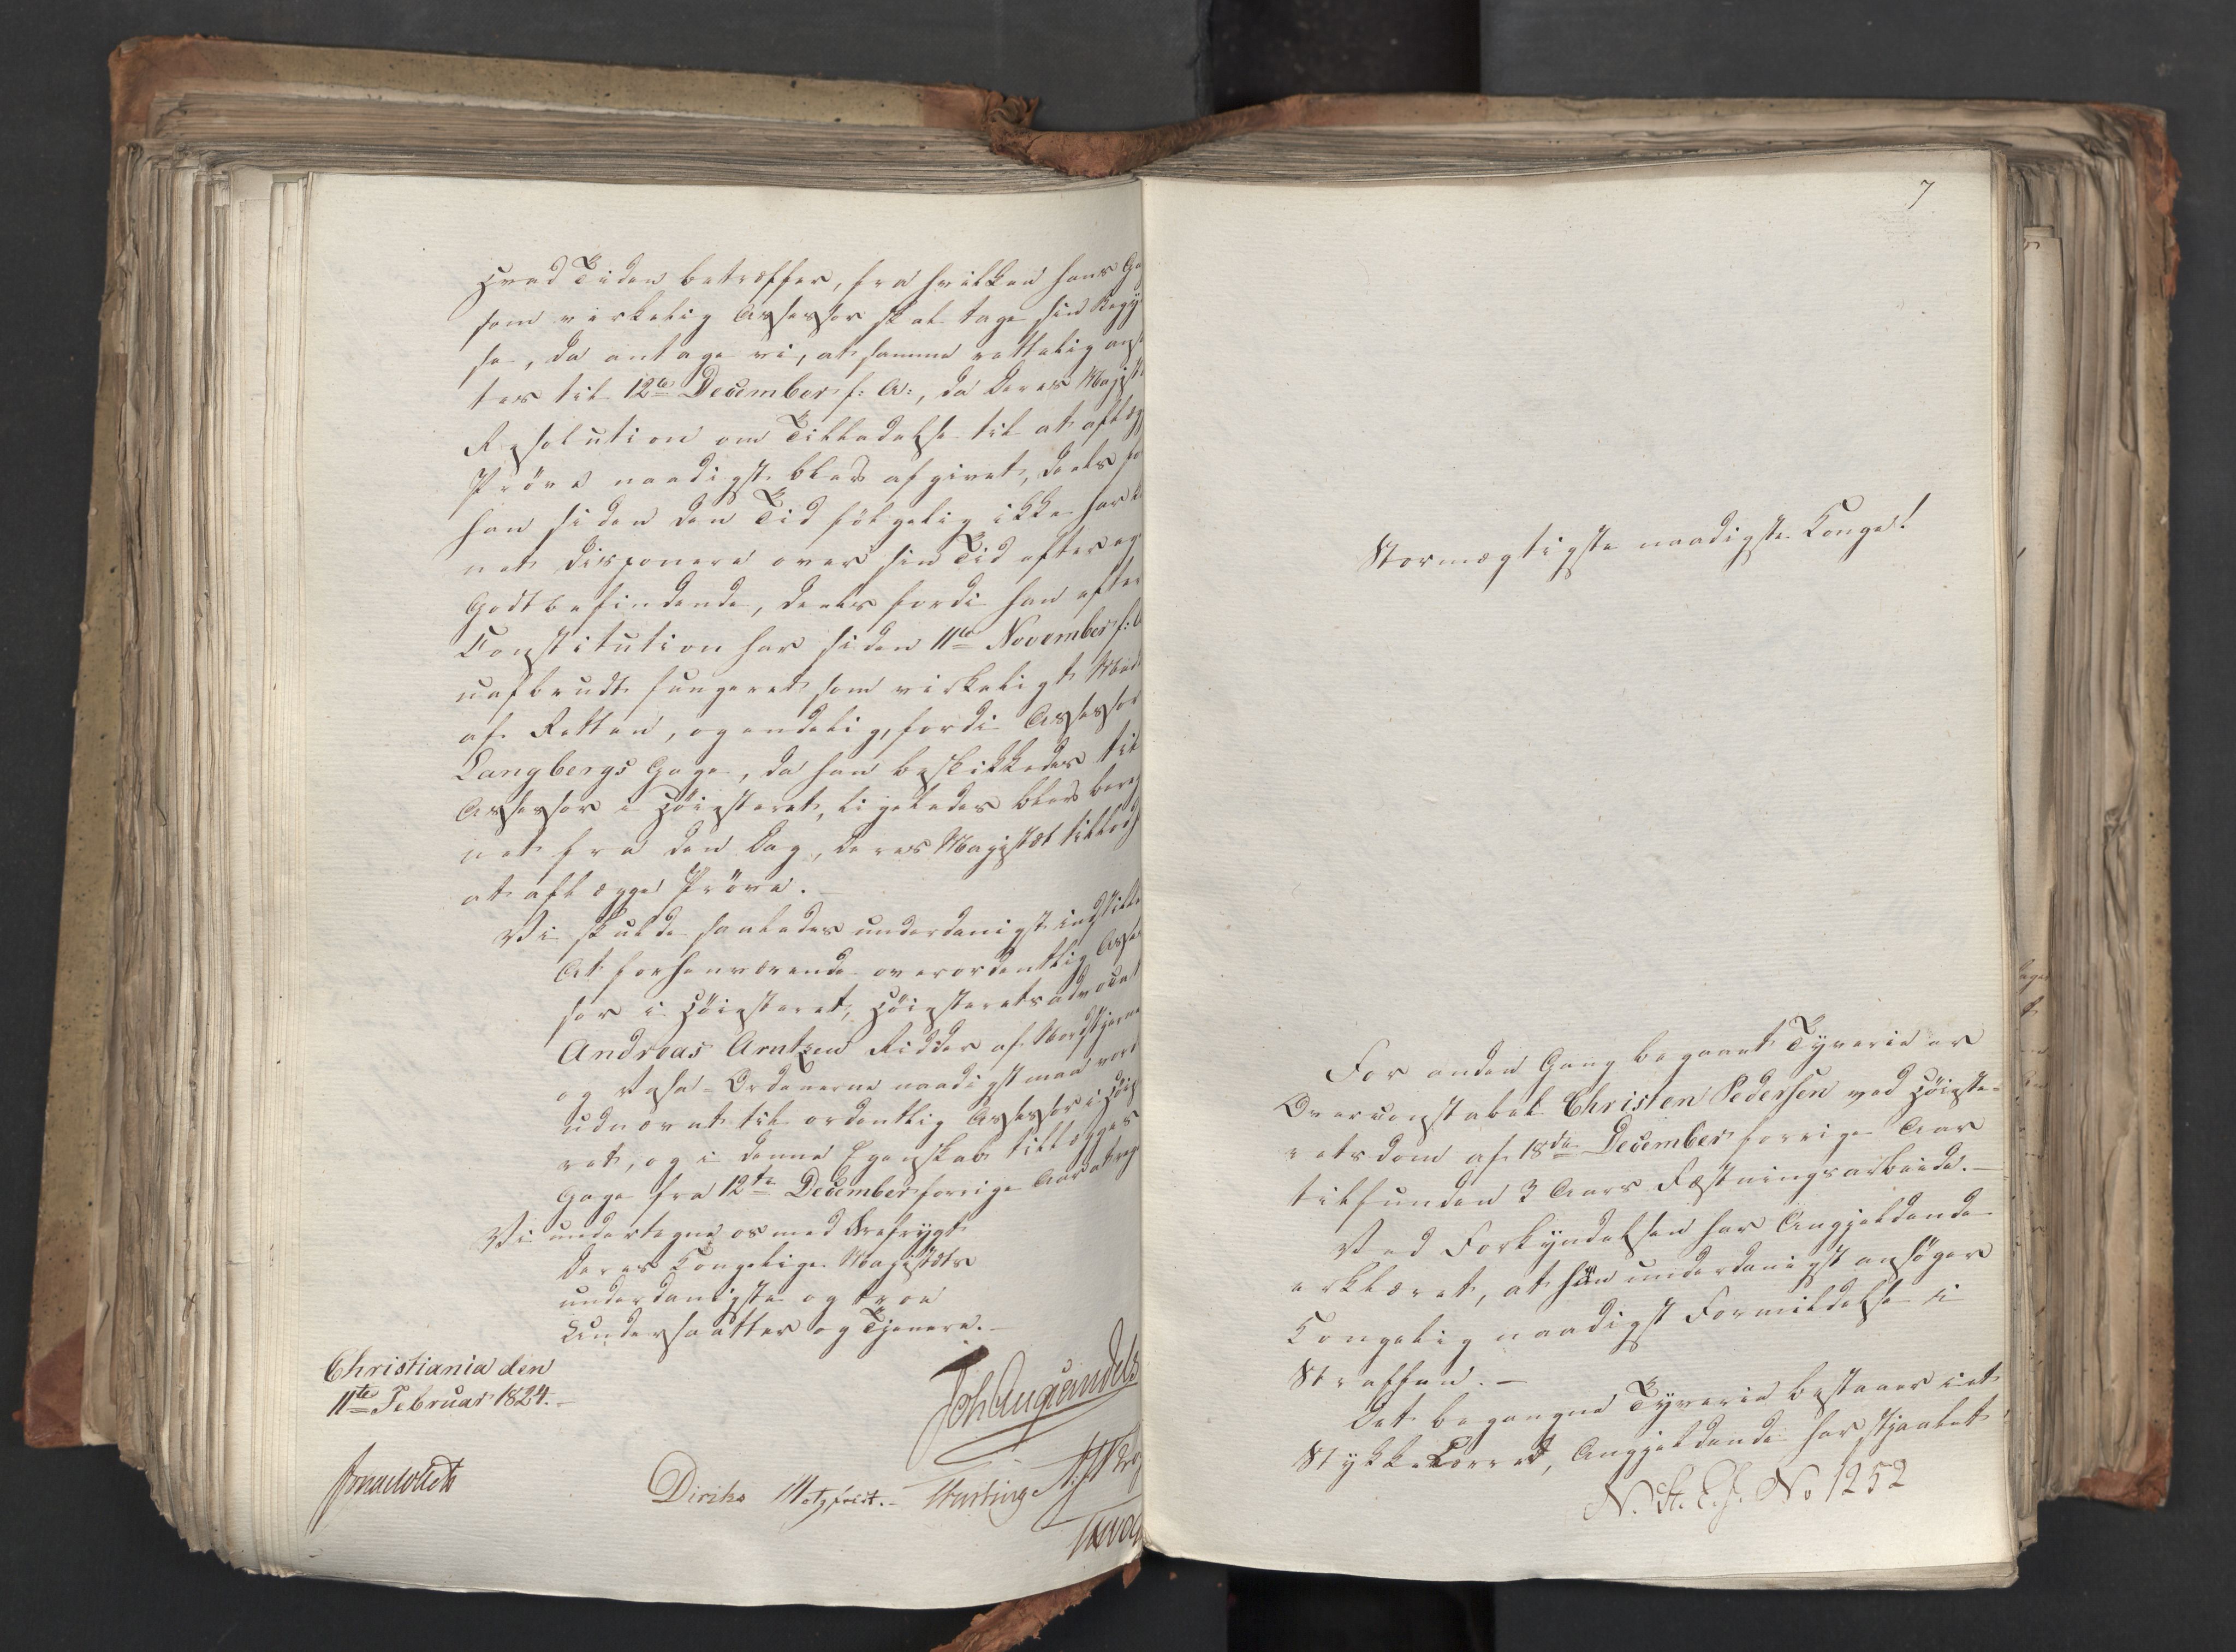 Hvad Tiden betræffer, fra hvilken hans Ga
som virkelig Assessor skal tage sin Begyn
se, da antage vi, at samme rettelig ansæ
tes til 12te December f: A:, da Deres Majest
Resolution om Tilladelse til at aflæg
Prøve naadigst blev afgivet, deels fo
han siden den Tid følgelig ikke har k
net disponere over sin Tid efter eg
Godtbefindende, deels fordi han efter
Constitution har siden 11te November f: A
uafbrudt fungeret som virkeligt Med
af Retten, og endelig, fordi Assessor
Langbergs Gage, da han beskikkedes til
Assessor i Høiesteret, ligeledes blev bereg
net fra den Dag, Deres Majestæt tillod
at aflægge Prøve.
Vi skulde saaledes underdanigst indstille
At forhenværende overordentlig Asses
sor i Høiesteret, Høiesteretsadvocat
Andreas Arntzen Ridder af Nordstjerne
og Vasa-Ordenerne naadigst maa vord
udnævnt til ordentlig Assessor i Høie
ret, og i denne Egenskab tillægges
Gage fra 12te December forrige Aar at reg
Vi undertegne os med Ærefrygt
Deres Kongelige Majestæts
underdanigste og troe
Undersaatter og Tjenere.
Christiania den
11te Februar 1824.
Diriks Motzfeldt.
7
Stormægtigste naadigste Konge!
For anden Gang begaaet Tyverie er
Overconstabel Christen Pedersen ved Høieste-
retsdom af 18de December forrige Aar
tilfunden 3 Aars Fæstningsarbeide.-
Ved Forkyndelsen har Angjeldende
erklæret, at han underdanigst ansøger
Kongelig naadigst Formildelse i
Straffen.-
Det begangne Tyverie bestaaer i et
Stykke Lærred, Angjeldende har stjaalet
N. St. E. J. No 1252